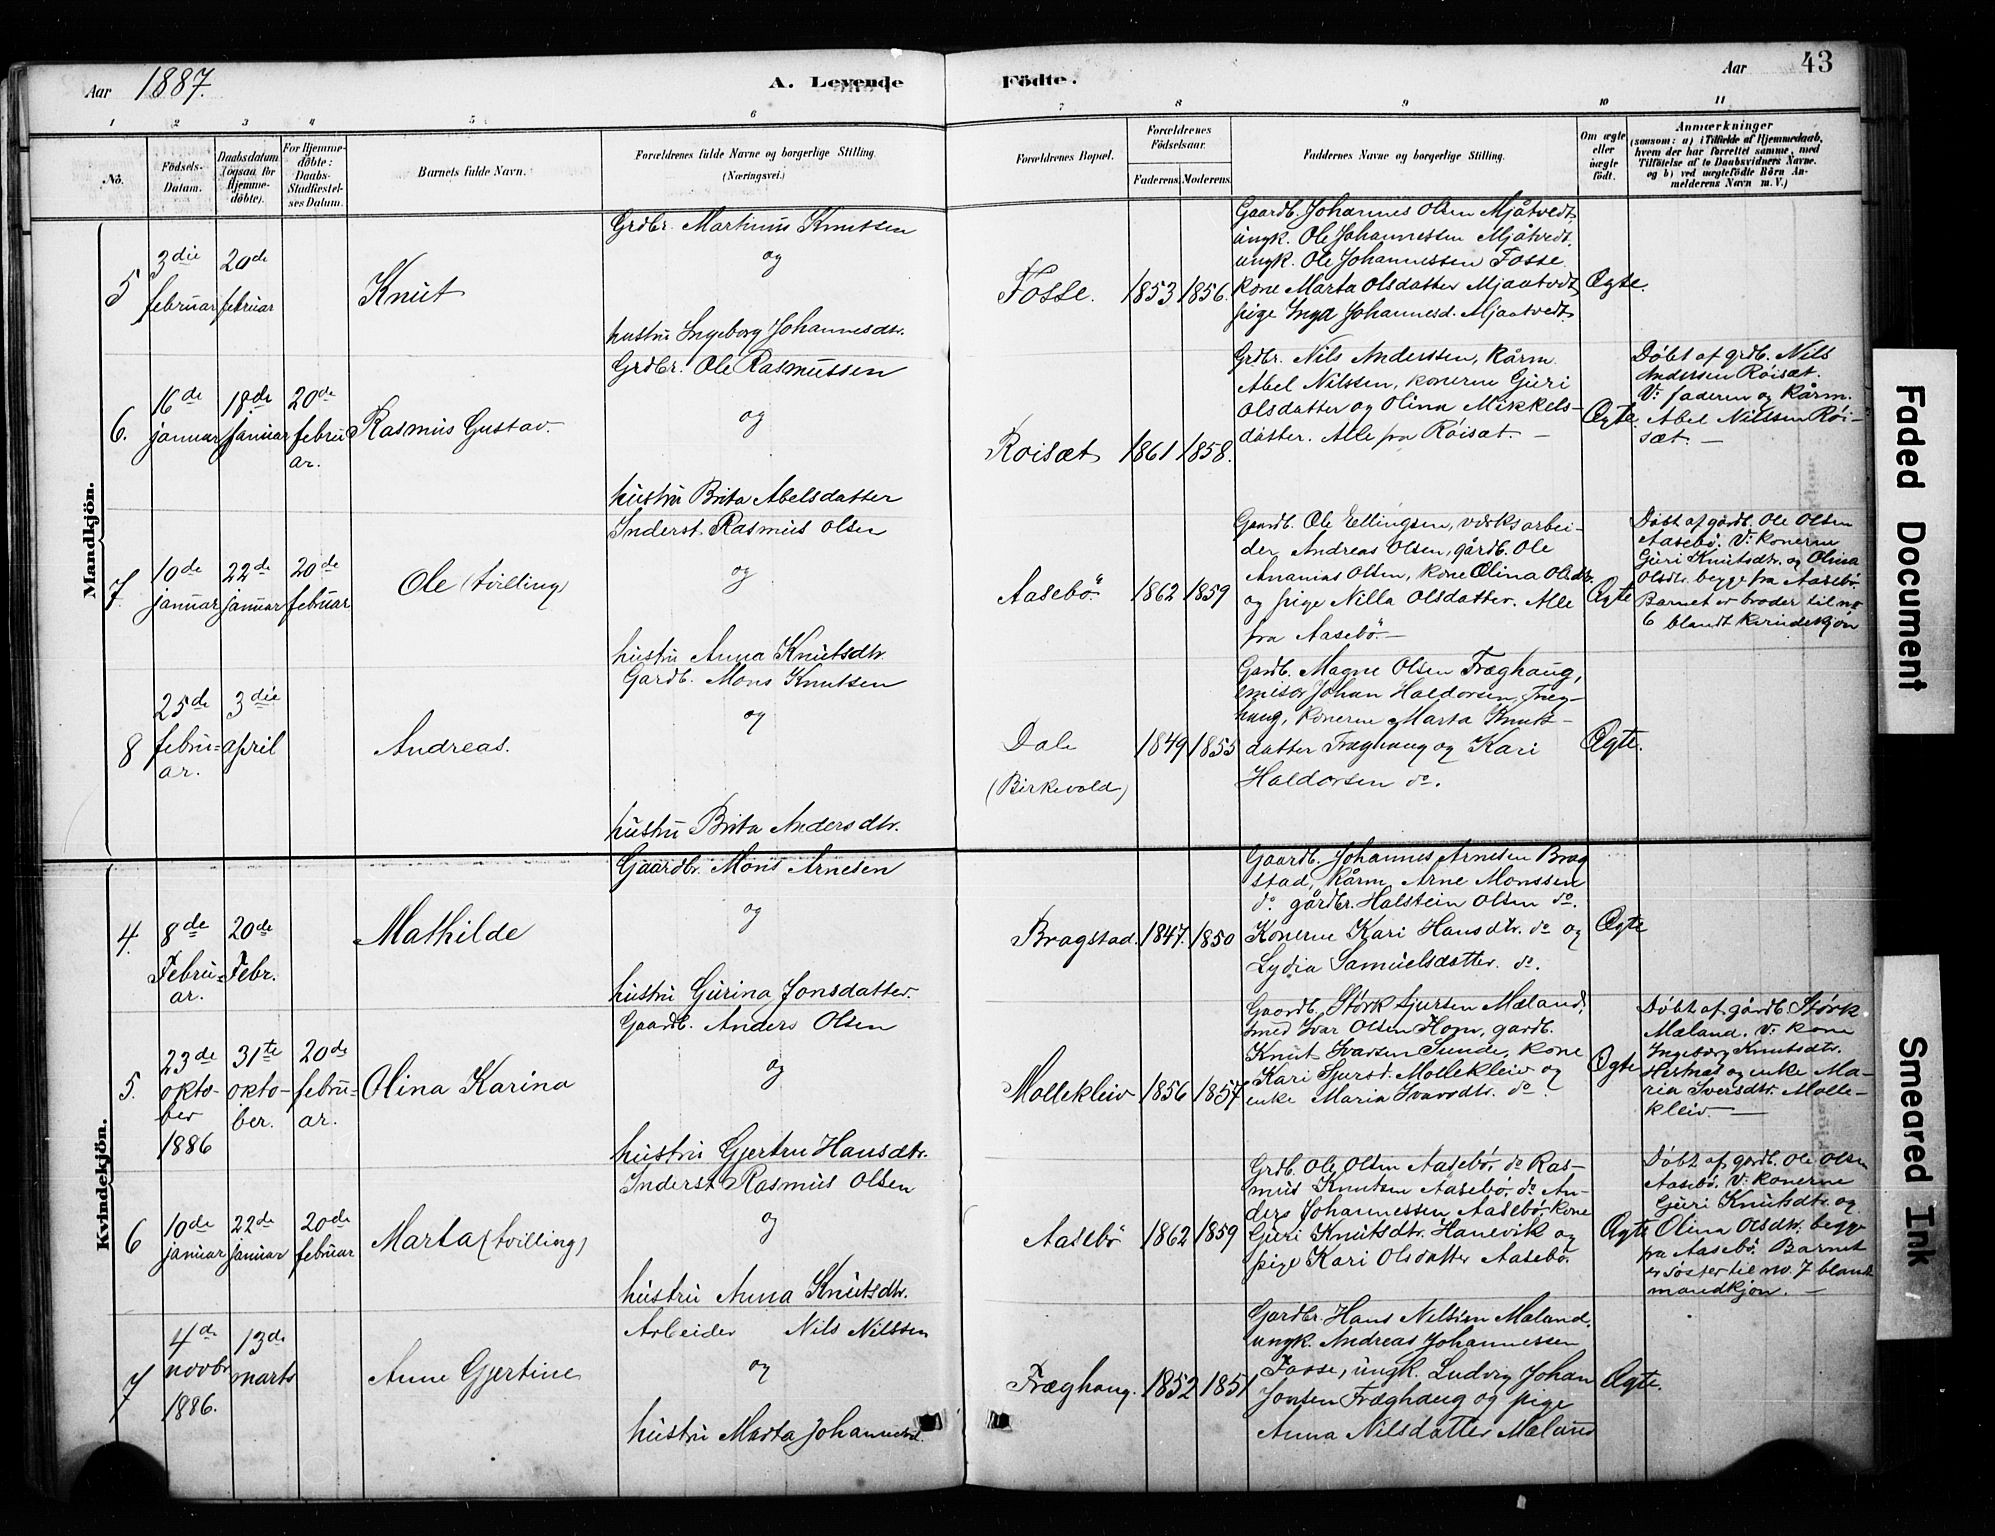 Aar 1887.
A. Levende Födte.
Aar 43
1 2 3 4 5 6 7 8 9 10 11
Nò.
Födsels-Datum.
Daabsdatum (ogsaa for Hjemme-döbte).
For Hjemme-döbte: Daabs-Stadfæstel-ses Datum.
Barnets fulde Navn.
Forældrenes fulde Navne og borgerlige Stilling. (Næringsvei.)
Forældrenes Bopæl.
Forældrenes Födselsaar.
Faderens. Moderens.
Faddernes Navne og borgerlige Stilling.
Om ægte eller uægte födt.
Anmærkninger
(saasom: a) i Tilfælde af Hjemmedaab,
hvem der har forrettet samme, med
Tilföielse af to Daabsvidners Navne.
og b) ved uægtefödte Börn An-
melderens Navn m. V.)
Mandkjön.
5
3die februar
20de februar
Knut
Grdbr. Martinus Knutsen
og
hustru Ingeborg Johannesdtr.
Fosse.
1853
1856.
Gaardb. Johannes Olsen Mjåtvedt,
ungk. Ole Johannessen Mjåtvedt.
ungk. Ole Johannessen Fosse.
kone Marta Olsdatter Mjaatvedt,
pige Inga Johannesd. Mjaatvedt.
Ægte.
6.
16de januar
18de januar
20de februar.
Rasmus Gustav.
Grdbr. Ole Rasmussen
og
hustru Brita Abelsdatter
Röisæt
1861
1858.
Grdbr. Nils Anderssen, Kårm.
Abel Nilssen, konerne Guri
Olsdatter og Olina Mikkels-
datter. Alle fra Röisæt. —
Ægte
Döbt af grdb. Nils
Andersen Röisæt.
V: faderen og Kårm.
Abel Nilssen Röi-
sæt. —
7.
10de januar
22de januar
20de februar
Ole (tvilling)
Inderst. Rasmus Olsen
og
hustru Anna Knutsdtr.
Aasebö
1862
1859
Gaardb. Ole Ellingsen, værksarbei-
der Andreas Olsen, gårdb. Ole
Ananias Olsen, kone Olina Olsdtr.
og pige Nilla Olsdatter. Alle
fra Aasebö. —
Ægte
Döbt af gårdb. Ole Olsen
Aasebö. V: konerne
Guri Knutsdtr. og Olina
Olsdtr. begge fra Aasebö.
Barnet er broder til no
6 blandt kvindekjön
8
25de februar.
3die april
Andreas.
Gardb. Mons Knutsen
og
hustru Brita Andersdtr.
Dale
(Birkevold)
1849
1855
Gardb. Magne Olsen Fræghaug,
Johan Haldorsen, Fræg-
haug, konerne Marta Knuts-
datter Fræghaug og Kari
Haldorsen do.
Ægte.
Kvindekjön.
4.
8de Februar.
20de Febr.
Mathilde
Gaardbr. Mons Arnesen
og
hustru Gurina Jonsdatter.
Bragstad.
1847.
1850
Gaardb. Johannes Arnesen Brag
stad, Kårm. Arne Monssen
do. gårdbr. Halstein Olsen do.
Konerne Kari Hansdtr. do og
Lydia Samuelsdatter. do.
Ægte
5.
23de oktober 1886
31te oktober.
20de februar.
Olina Karina
Gaardb. Anders Olsen
og
hustru Gjertru Hansdtr.
Mollekleiv
1856
1857
Gaardb. Störk Sjursen Mæland,
smed Ivar Olsen Hom, gardb.
Knut Ivarsen Sunde, kone
Kari Sjursd. Mollekleiv og
enke Maria Ivarsdtr. do.
Ægte
Döbt af gårdb. Störk
Mæland. V: kone
Ingeborg Knutsdtr.
Hertnæs og enke Ma-
ria Iversdtr. Molle-
kleiv. —
6
10de januar
22de januar
20de februar
Marta (tvilling)
Inderst. Rasmus Olsen
og
hustru Anna Knutsdtr.
Aasebö
1862
1859
Grdb. Ole Olsen Aasebö, do Ras-
mus Knutsen Aasebö, do An-
ders Johannessen Aasebö, kone
Guri Knutsdtr. Hanevik og
pige Kari Olsdatter Aasebö.
Ægte
Döbt af gardb. Ole Olsen
Aasebö. V: konerne
Guri Knutsdtr. og
Olina Olsdtr. begge
fra Aasebö. Barnet
er söster til no. 7 blandt
mandkjön. —
7
4de novbr. 1886.
13de marts
Anne Gjertine
Arbeider Nils Nilssen
og
hustru Marta Johannesd.
Fræghaug.
1852
1851
Gardbr. Hans Nilsen Mæland,
ungk. Andreas Johannessen
Fosse, ungk. Ludvig Johan
Jonsen Fræghaug og pige
Anna Nilsdatter Mæland
Ægte.
Faded Document
Smeared Ink